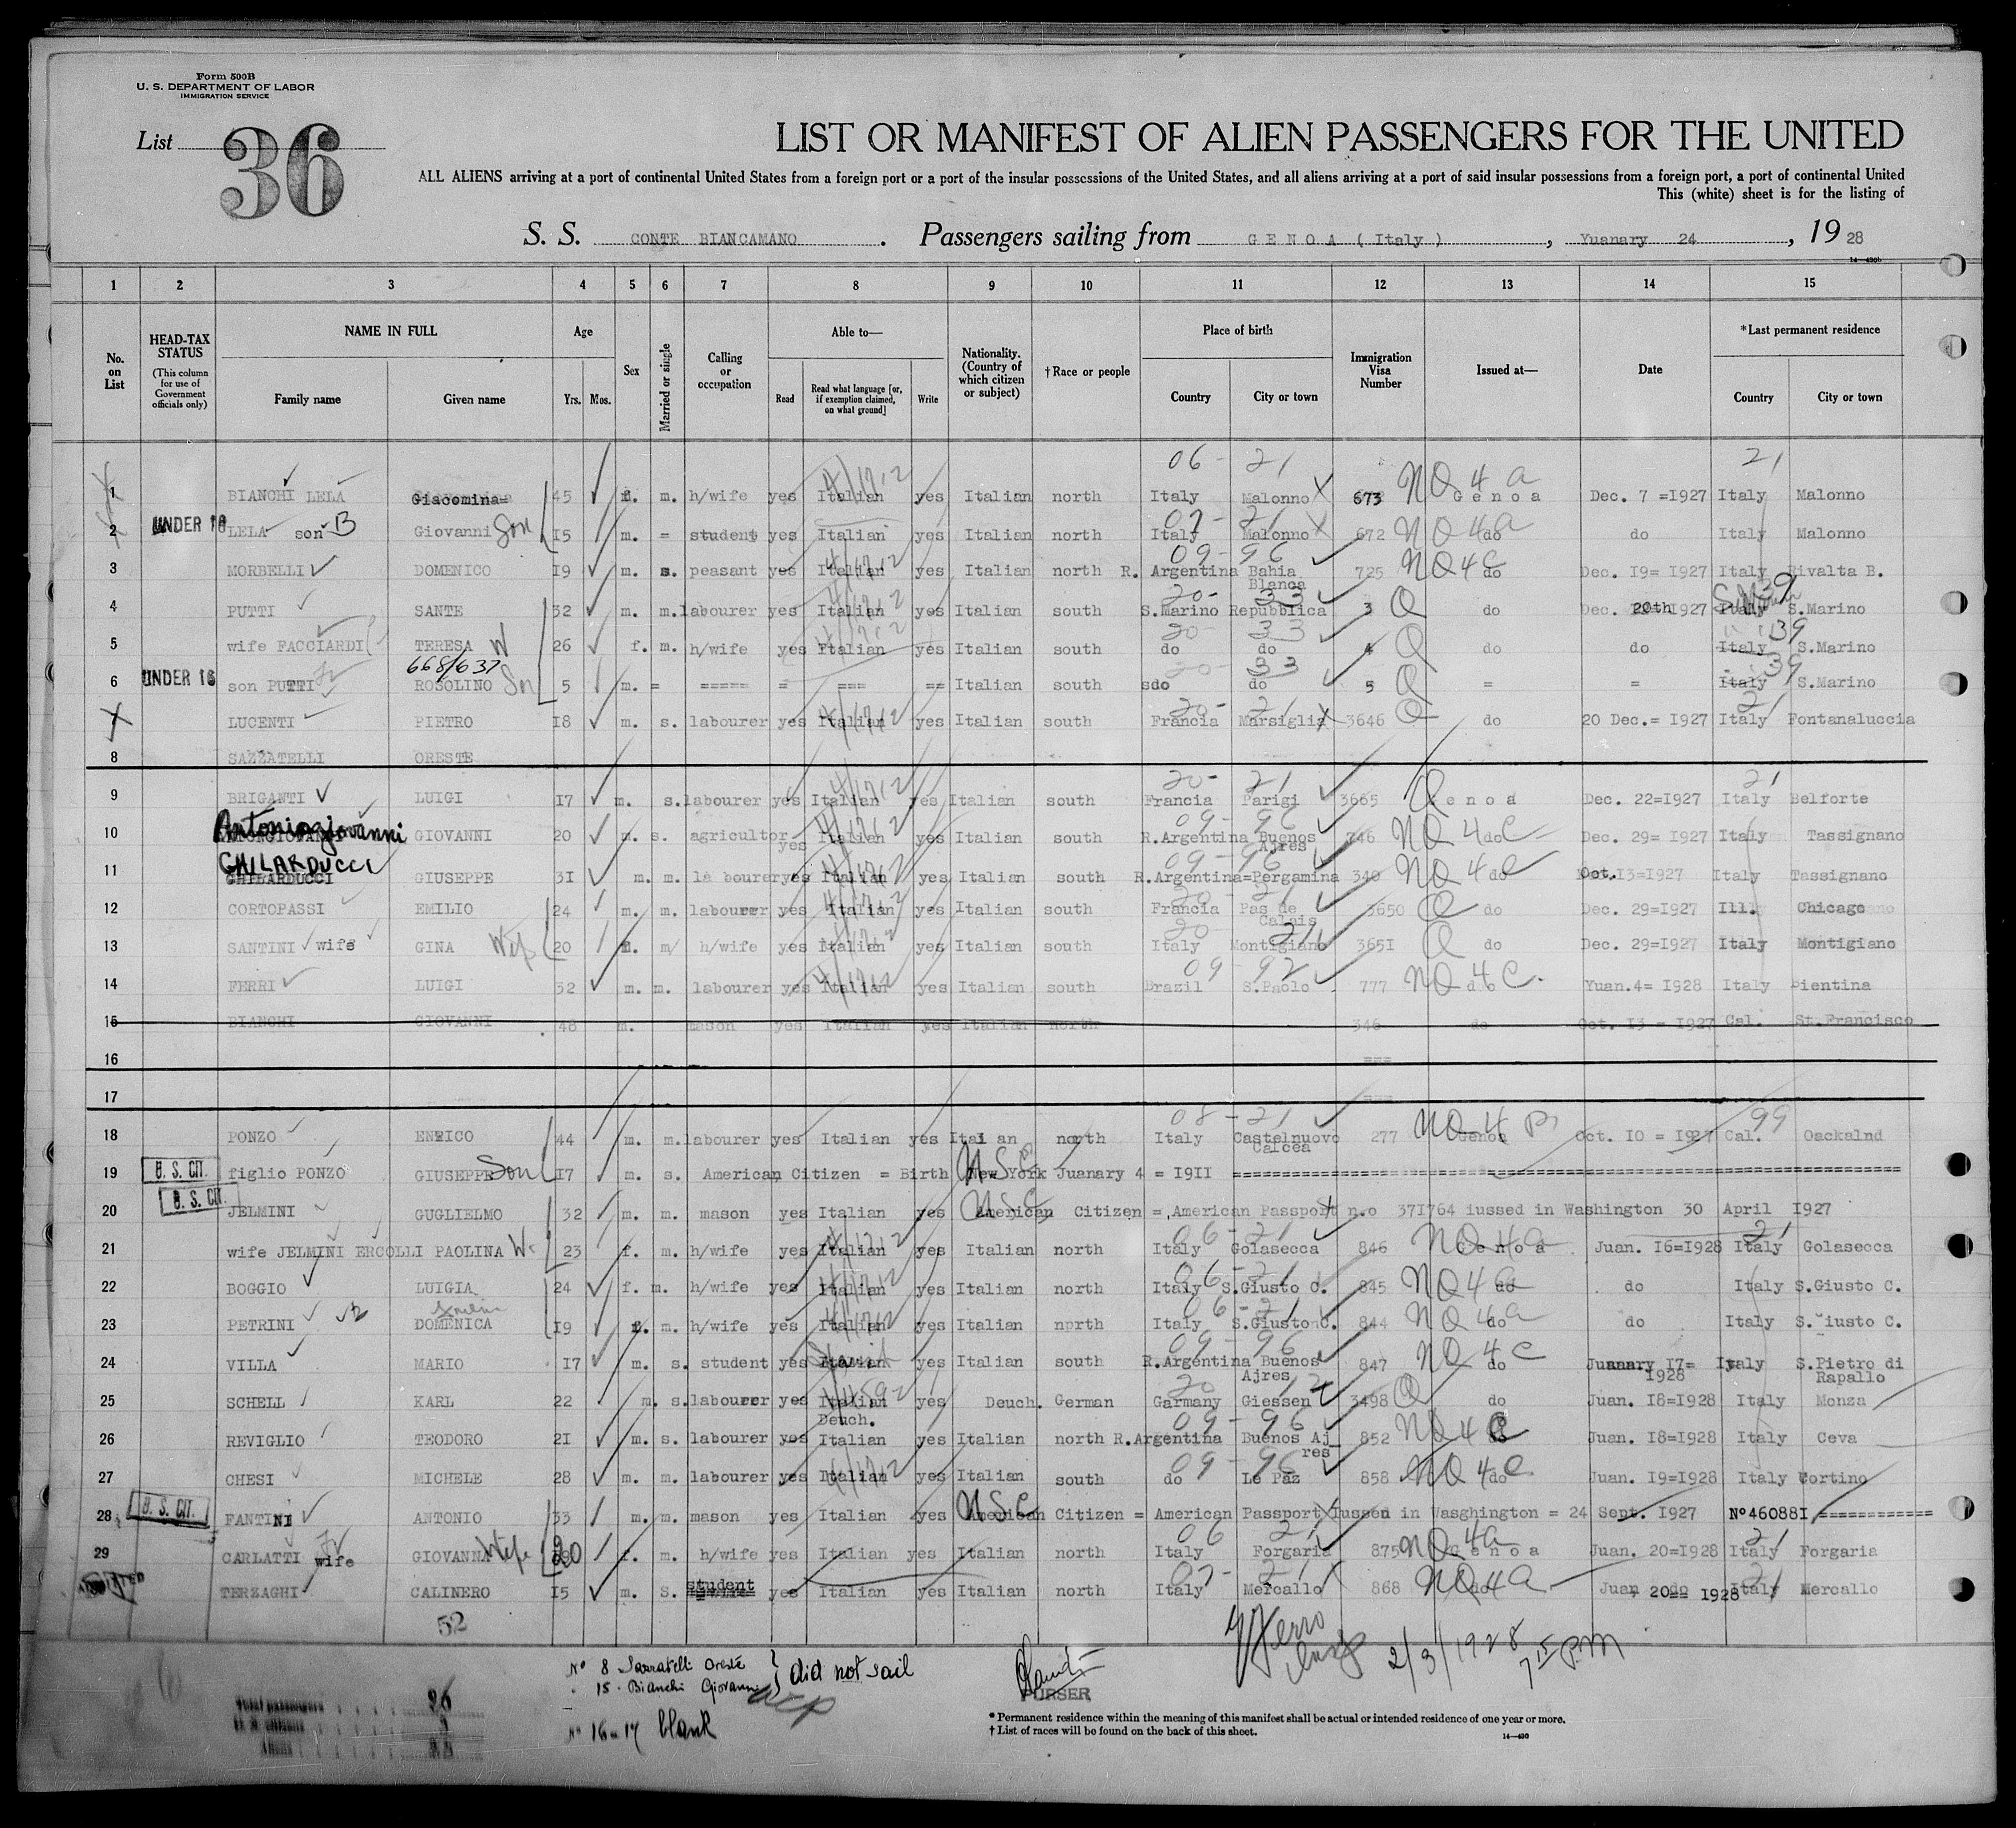 Form 500B
U. S. DEPARTMENT OF LABOR
IMMIGRATION SERVICE
List 36
LIST OR MANIFEST OF ALIEN PASSENGERS FOR THE UNITED
ALL ALIENS arriving at a port of continental United States from a foreign port or a port of the insular possessions of the United States, and all aliens arriving at a port of said insular possessions from a foreign port, a port of continental United
This (white) sheet is for the listing of
S. S. CONTE BIANCAMANO. Passengers sailing from GENOA (Italy), Yuanary 24, 1928
14—430b
1 2 3 4 5 6 7 8 9 10 11 12 13 14 15
No. on List
HEAD-TAX STATUS (This column for use of Government officials only)
NAME IN FULL Family name Given name
Age Yrs. Mos.
Sex
Married or single
Calling or occupation
Able to— Read Read what language [or, if exemption claimed, on what ground] Write
Nationality. (Country of which citizen or subject)
†Race or people
Place of birth Country City or town
Immigration Visa Number
Issued at—
Date
*Last permanent residence Country City or town
06- 21 21
1 BIANCHI LELA Giacomina= 45 f. m. h/wife yes Italian yes Italian north Italy Malonno 673 NQ4a Genoa Dec. 7 =1927 Italy Malonno
07- 21
2 UNDER 16 LELA son B Giovanni Son 15 m. = student yes Italian yes Italian north Italy Malonno 672 NQ4a do do Italy Malonno
09-96
3 MORBELLI DOMENICO 19 m. s. peasant yes Italian yes Italian north R. Argentina Bahia Blanca 725 NQ4c do Dec. 19= 1927 Italy Rivalta B.
20- 33 39
4 PUTTI SANTE 32 m. m. labourer yes Italian yes Italian south S.Marino Repubblica 3 Q do Dec. 20th 1927 Italy S.Marino
20- 33 39
5 wife FACCIARDI TERESA W 26 f. m. h/wife yes Italian yes Italian south do do 4 Q do do Italy S.Marino
668/637
20- 33 39
6 UNDER 16 son PUTTI ROSOLINO Son 5 m. = ===== = === == Italian south sdo do 5 Q = = Italy S.Marino
20- 21 21
7 LUCENTI PIETRO 18 m. s. labourer yes Italian yes Italian south Francia Marsiglia 3646 Q do 20 Dec.= 1927 Italy Fontanaluccia
8 SAZZATELLI ORESTE
20- 21 21
9 BRIGANTI LUIGI 17 m. s. labourer yes Italian yes Italian south Francia Parigi 3665 Q Genoa Dec. 22=1927 Italy Belforte
09-96
10 Antoniogiovanni GIOVANNI 20 m. s. agricultor yes Italian yes Italian south R.Argentina Buenos Ajres 746 NQ4c do Dec. 29= 1927 Italy Tassignano
09-96
11 GHILARDUCCI GHILARDUCCI GIUSEPPE 31 m. m. la bourer yes Italian yes Italian south R.Argentina=Pergamina 340 NQ4c do Oct.13=1927 Italy Tassignano
20- 21
12 CORTOPASSI EMILIO 24 m. m. labourer yes Italian yes Italian south Francia Pas de Calais 3650 Q do Dec. 29=1927 Ill. Chicago
20- 21
13 SANTINI wife GINA Wife 20 m/ h/wife yes Italian yes Italian south Italy Montigiano 3651 Q do Dec. 29=1927 Italy Montigiano
09-92
14 FERRI LUIGI 32 m. m. labourer yes Italian yes Italian south Brazil S.Paolo 777 NQ4c do Yuan.4= 1928 Italy Bientina
15 BIANCHI GIOVANNI 48 m. mason yes Italian yes Italian north 346 do Oct. 13 = 1927 Cal. St.Francisco
16 ===
17 ===
08-21 99
18 PONZO ENRICO 44 m. m. labourer yes Italian yes Italian north Italy Castelnuovo Calcea 277 NQ4 Genoa Oct. 10 = 1927 Cal. Oackalnd
19 U. S. CIT. figlio PONZO GIUSEPPE Son 17 m. s. American Citizen = Birth New York Juanary 4 = 1911
20 U. S. CIT. JELMINI GUGLIELMO 32 m. m. mason yes Italian yes American Citizen = American Passport n.o 371764 iussed in Washington 30 April 1927
06-21 21
21 wife JELMINI ERCOLLI PAOLINA W. 23 f. m. h/wife yes Italian yes Italian north Italy Golasecca 846 NQ4a Genoa Juan. 16=1928 Italy Golasecca
06-21
22 BOGGIO LUIGIA 24 f. m. h/wife yes Italian yes Italian north Italy S.Giusto C. 845 NQ4a do do Italy S.Giusto C.
06-21
23 PETRINI DOMENICA 19 f. m. h/wife yes Italian yes Italian nprth Italy S.Giusto C. 844 NQ4a do do Italy S.Giusto C.
09-96
24 VILLA MARIO 17 m. s. student yes Italian yes Italian south R.Argentina Buenos Ajres 847 NQ4c do Juanary 17= 1928 Italy S.Pietro di Rapallo
20 12
25 SCHELL KARL 22 m. s. labourer yes Italian Deuch. yes Deuch. German Garmany Giessen 3498 Q do Juan. 18=1928 Italy Monza
09-96
26 REVIGLIO TEODORO 21 m. s. labourer yes Italian yes Italian north R.Argentina Buenos Ajres 852 NQ4c do Juan. 18=1928 Italy Ceva
09-96
27 CHESI MICHELE 28 m. m. labourer yes Italian yes Italian south do La Paz 858 NQ4c do Juan. 19=1928 Italy Cortino
28 U. S. CIT. FANTINI ANTONIO 33 m. m. mason yes Italian yes American Citizen = American Passport Iussed in Wasghington = 24 Sept. 1927 No 460881 ============
06 21 21
29 CARLATTI wife GIOVANNA Wife 20 f. m. h/wife yes Italian yes Italian north Italy Forgaria 875 NQ4a Genoa Juan. 20=1928 Italy Forgaria
07- 21 21
TERZAGHI CALINERO 15 m. S. student yes Italian yes Italian north Italy Mercallo 868 NQ4a do Juan, 20== 1928 Italy Mercallo
52
No 8 Sazzatelli Oreste
" 15. Bianchi Giovanni } did not sail
No 16-17 blank
Total passengers 26
PURSER
2/3/1928 7 15 P.M
* Permanent residence within the meaning of this manifest shall be actual or intended residence of one year or more.
† List of races will be found on the back of this sheet.
14—430